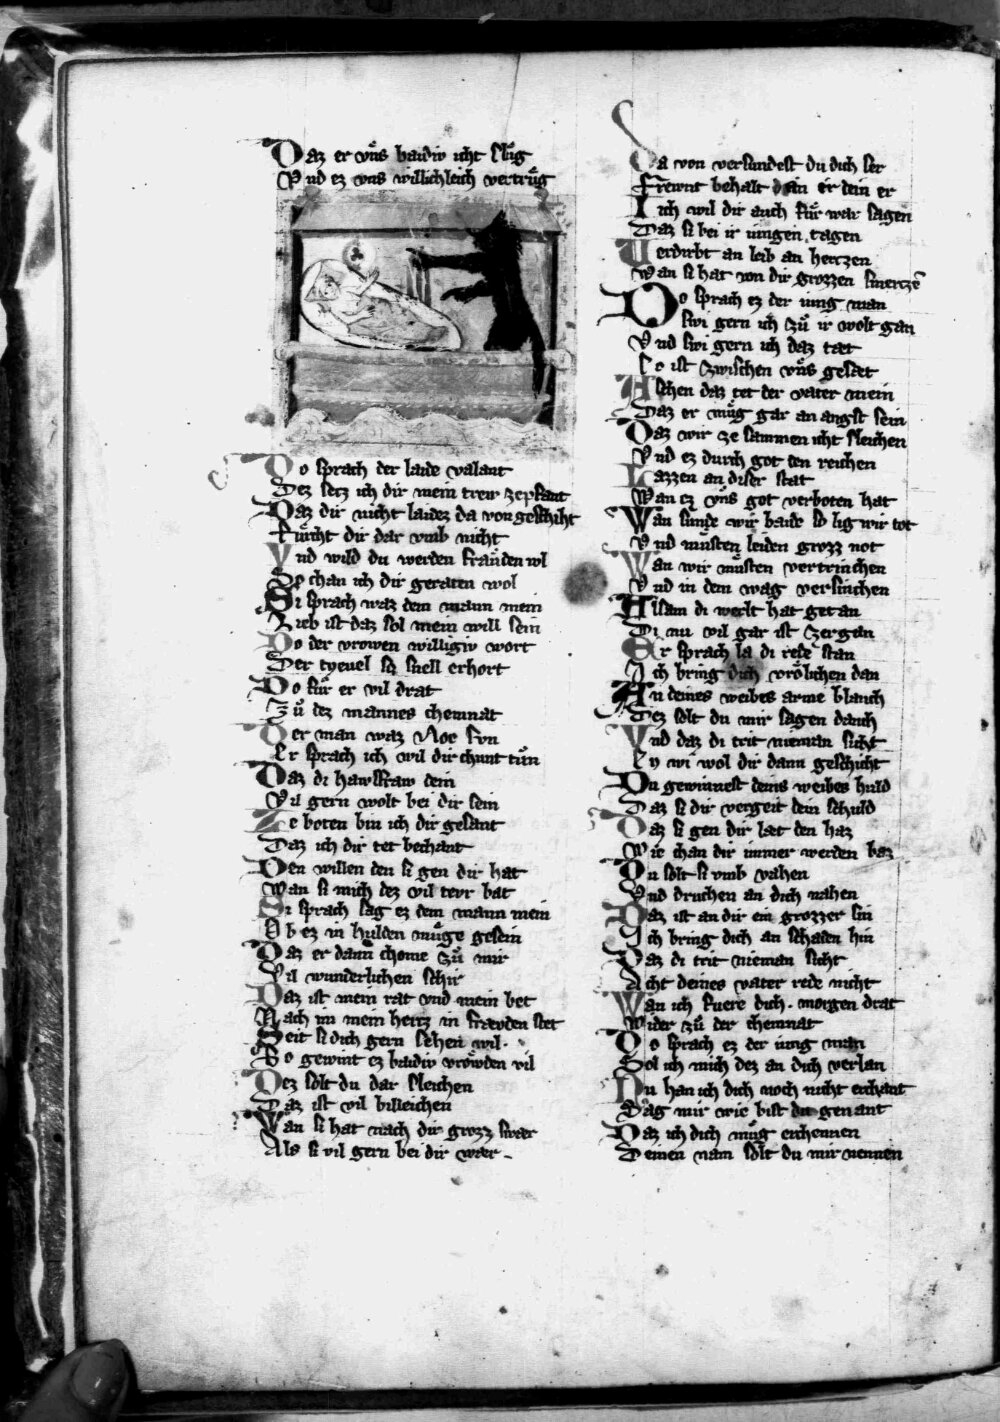 Daz er vns baidiv icht slůg
Vnd ez vns willichleich vertrůg
Do sprach der laide valant
Dez setz ich dir mein trew ze pfant
Daz dir nicht laidez da von geschiht
Furcht dir dar vmb nicht
Vnd wild du werden frauden vol
So chan ich dir geraten wol
Si sprach waz dem mann mein
Lieb ist daz sol mein will sein
Do der vrowen willigiv wort
Der tyeuel so snell erhort
Do fůr er vil drat
Zů dez mannes chemnat
Der man waz Noe svn
Er sprach ich wil dir chunt tůn
Daz di hawsfraw dein
Vil gern wolt bei dir sein
Ze boten bin ich dir gesant
Daz ich dir tet bechant
Den willen den si gen dir hat
Wan si mich dez vil tevr bat
Si sprach sag ez dem mann mein
Ob ez in hulden můge gesein
Daz er dann chome zů mir
Vil wunderlichen schir
Daz ist mein rat vnd mein bet
Nach im mein hertz in frevden stet
Seit si dich gern sehen wil
So gewint ez baidiv vrowden vil
Dez solt du dar sleichen
Daz ist vil billeichen
Wan si hat nach dir grozz swer
Als si vil gern bei dir wær
Da von versundest du dich ser
Frewnt behalt dein er
Ich wil dir auch fůr war sagen
Daz si bei ir iungen tagen
Verdirbt an leib an hertzen
Wan si hat von dir grozzen smerczē
Do sprach ez der iung man
Swi gern ich zů ir wolt gan
Vnd swi gern ich daz tæt
So ist zwischen vns gesæt
Aschen daz tet der vater mein
Daz er můg gar an angst sein
Daz wir ze sammen icht sleichen
Vnd ez durch got den reichen
Lazzen an diser stat
Wan ez vns got verboten hat
Wan sunde wir baide so lig wir tot
Vnd můsten leiden grozz not
Wan wir můsten vertrinchen
Vnd in dem wag versinchen
Alsam di werlt hat getan
Di nu vil gar ist zergan
Er sprach la di rede stan
Ich bring dich vrölichen dan
An deines weibes arme blanch
Dez solt du mir sagen danch
Vnd daz di trit nieman sicht
Ey wi wol dir dann geschicht
Du gewinnest deins weibes huld
Daz si dir vergeit dein schuld
Daz si gen dir læt den haz
Wie chan dir immer werden baz
Du solt si vmb vahen
Vnd druchen an dich nahen
Daz ist an dir ein grozzer sin
Ich bring dich an schaden hin
Daz di trit nieman sicht
Acht deines vater rede nicht
Wan ich fuere dich morgen drat
Wider zů der chemnat
Do sprach ez der iung man
Sol ich mich dez an dich verlan
Nu han ich dich noch nicht erchant
Sag mir wie bist du genant
Daz ich dich můg erchennen
Deinen nam solt du mir nennen